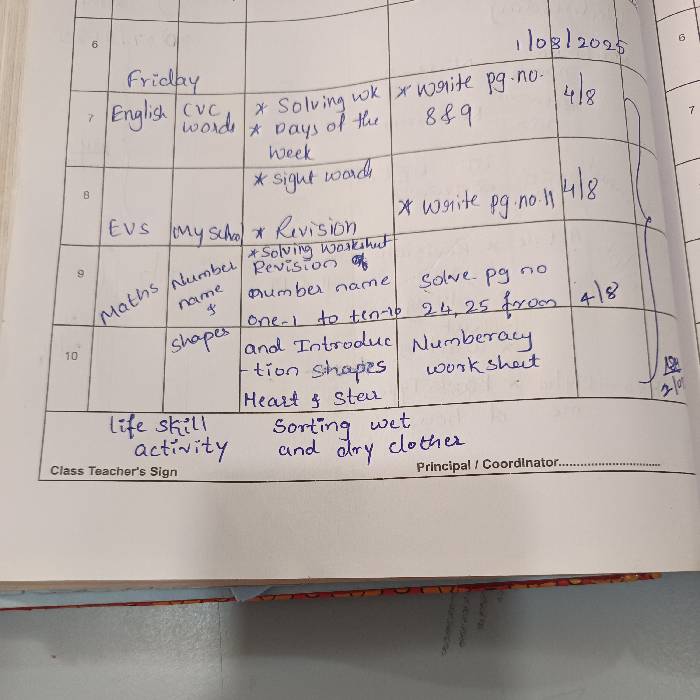 6
6
1/08/2025
Friday
7 English CVC words * Solving wk * Write pg.no. 8&9 4/8
* Days of the week
7
* Sight words
8 EVS My School * Revision * Write pg.no.11 4/8
* Solving Worksheet
9 Maths Number name & Revision of number name one-1 to ten-10 Solve pg no 24, 25 from 4/8
10 shapes and Introduc-tion Shapes Heart & Star Numberacy worksheet
life skill activity Sorting wet and dry clother
Class Teacher's Sign Principal / Coordinator..............................